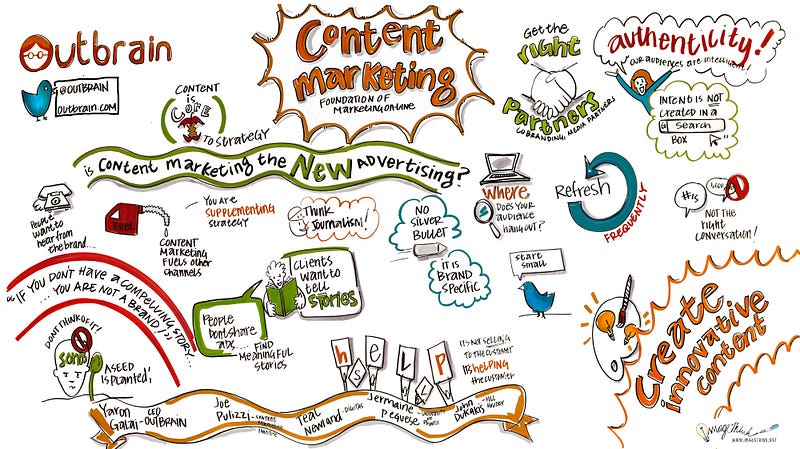 Outbrain
@OUTBRAIN
Outbrain.com
CONTENT
is
CORE
TO STRATEGY
Content
marketing
FOUNDATION OF
MARKETING ONLINE
Get the
right
Partners
COBRANDING, MEDIA PARTNERS
authenticity!
OUR AUDIENCES ARE intelligent!
INTENT IS NOT
CREATED IN A
Search
BOX
is Content marketing the New ADVERTISING?
People
want to
hear from
the brand...
FUEL
CONTENT
MARKETING
FUELS other
channels
You are
SUPPLEMENTING
strategy
Think
Journalism!
NO
SILVER
Bullet
IT IS
BRAND
SPECIFIC
WHERE
DOES YOUR
AUDIENCE
HANG OUT?
Refresh
FREQUENTLY
#is
NOT THE
right
CONVERSATION!
"IF YOU DON'T HAVE A COMPELLING STORY...
...YOU ARE NOT A BRAND!"
DON'T THINK OF IT!
A SEED
IS PLANTED,
People
Don't share
ads...
FIND
MEANINGFUL
STORIES
Clients
want to
tell
Stories
START
small
hELP
SELL
IT'S NOT SELLING
TO THE CUSTOMER
It's HELPING
the customer
Create
innovative
content
Yaron
Galai-
CEO
OUTBRAIN
Joe
Pulizzi-
CONTENT
MARKETING
INSTITUTE
Teal
Newland-
DIGITAS
Jermaine
John
Dukakis-
ImageThink
WWW.IMAGETHINK.NET